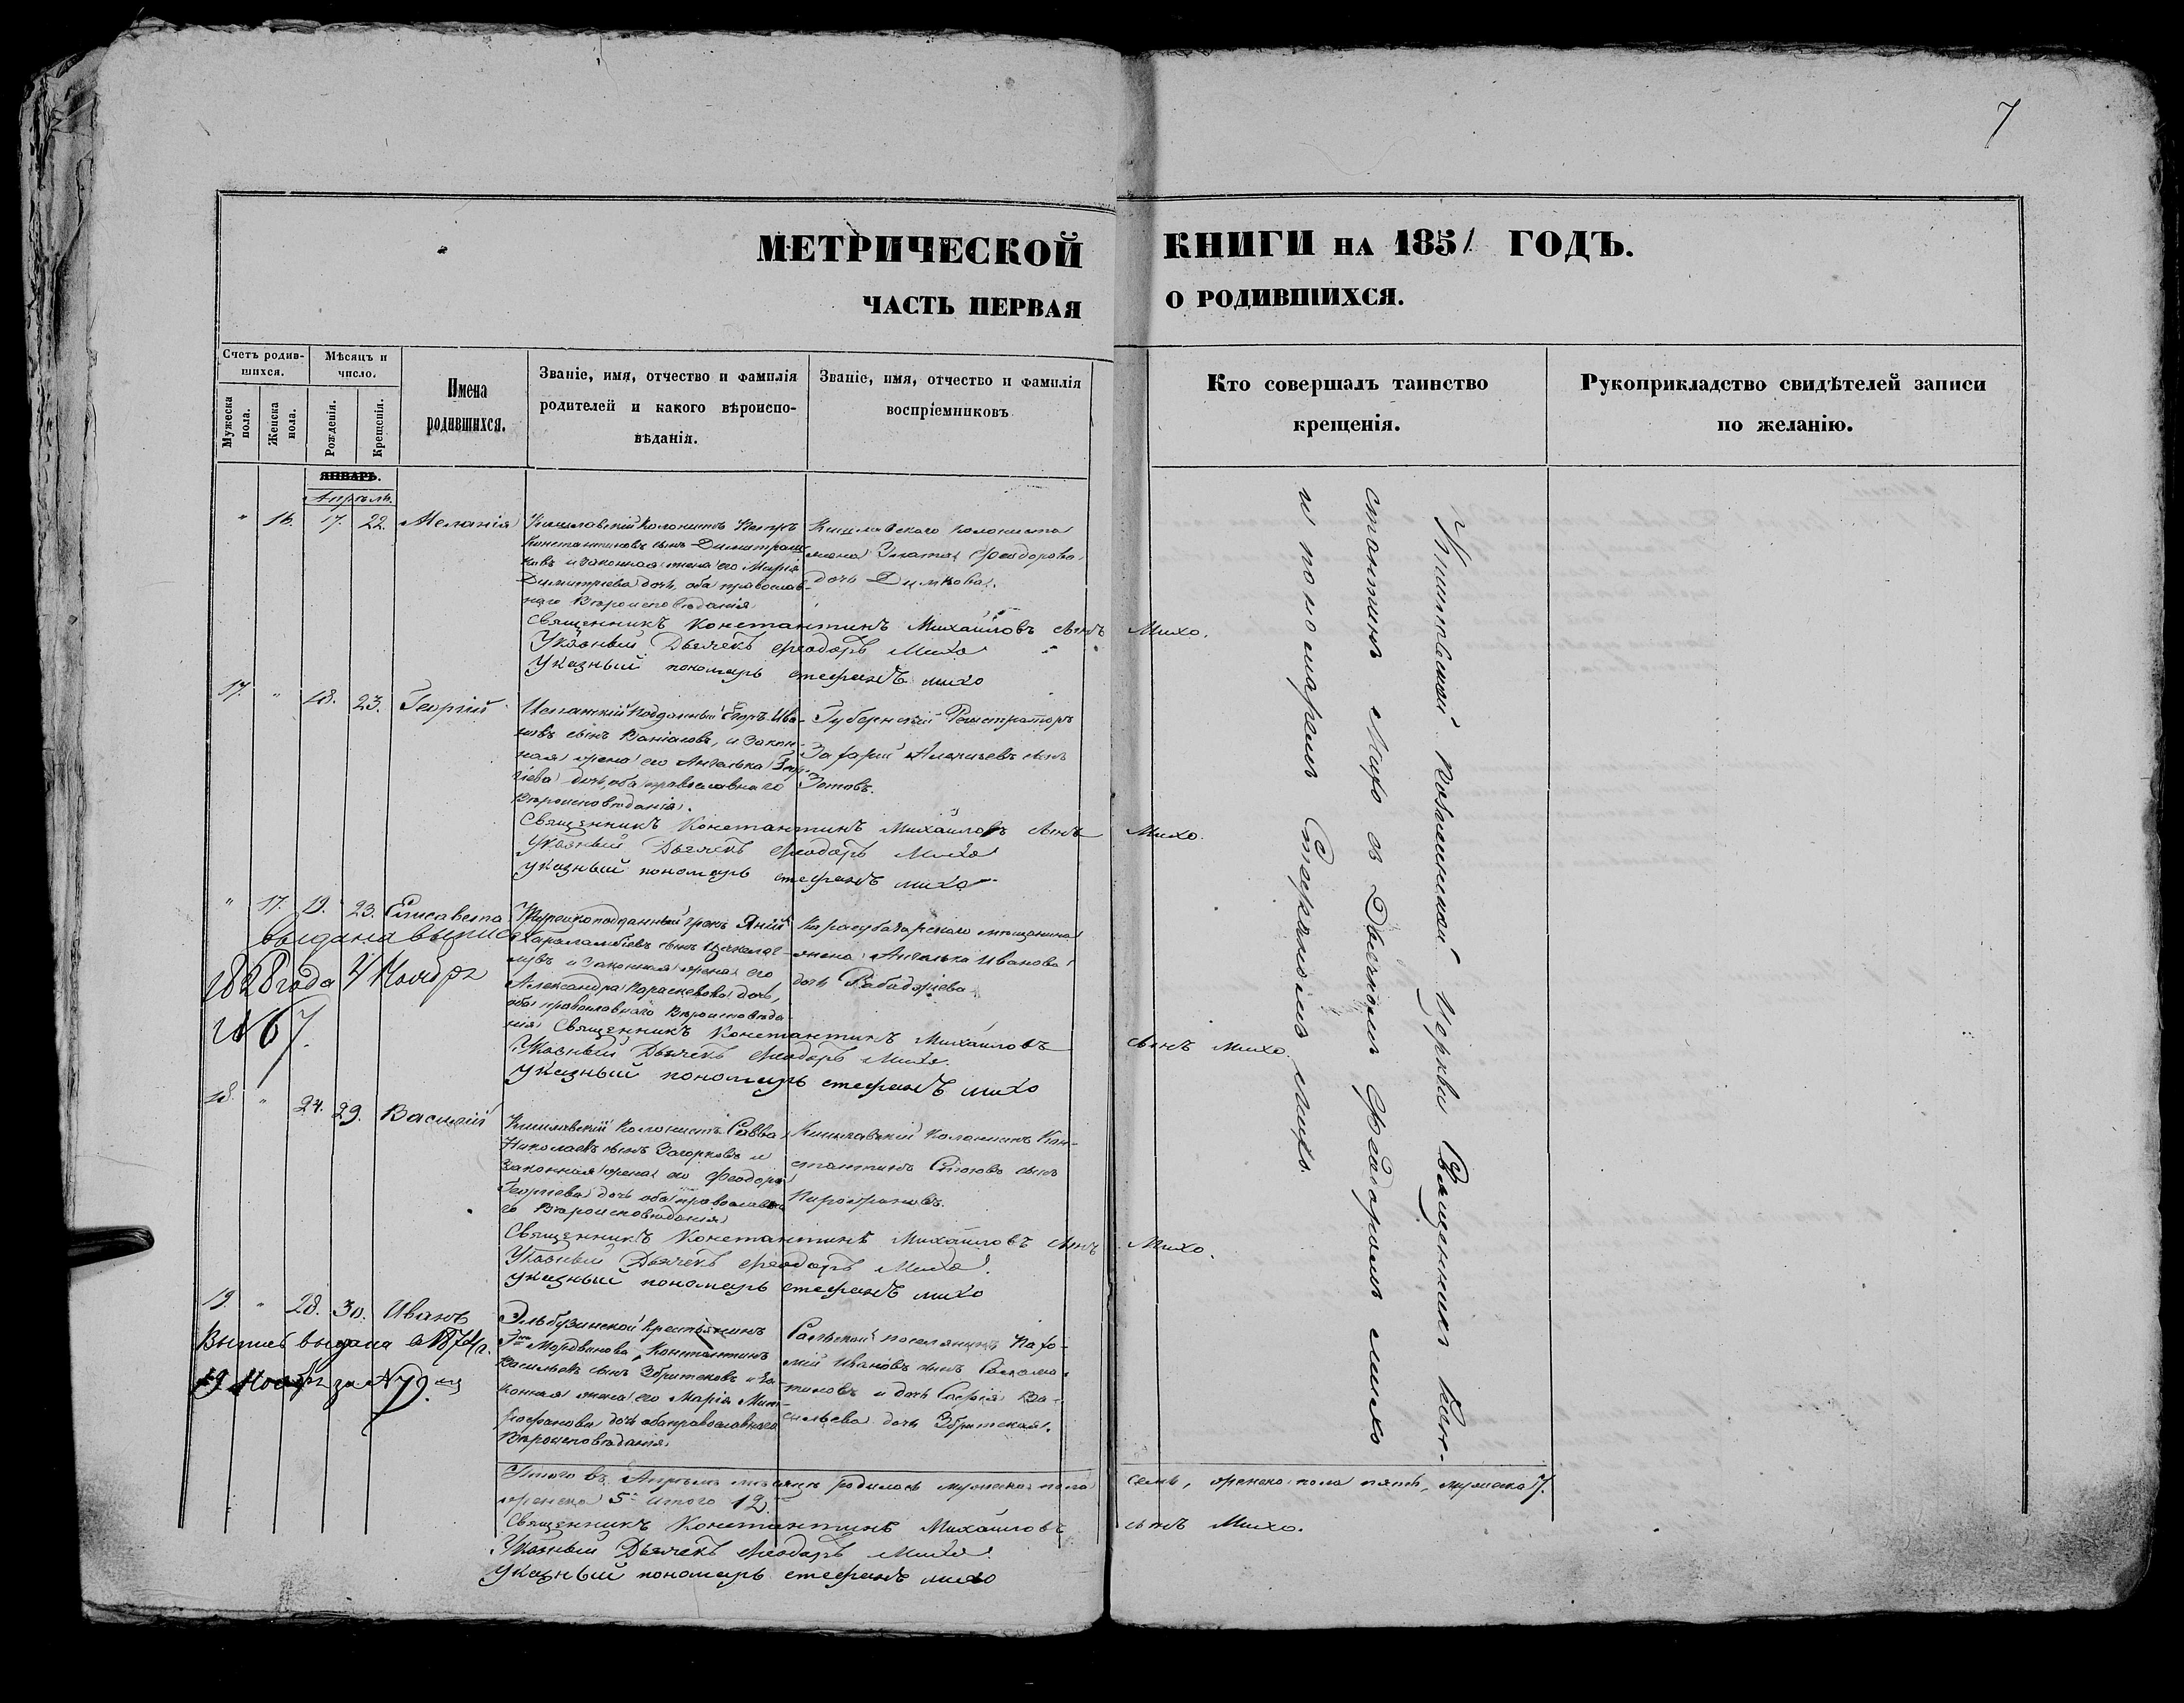 7
МЕТРИЧЕСКОЙ КНИГИ НА 1851 ГОДЪ.
ЧАСТЬ ПЕРВАЯ О РОДИВШИХСЯ.
Счетъ родив-
шихся.
Мужеска пола.
Женска пола.
Мѣсяцъ и
число.
Рожденія.
Крещенія.
Имена
родившихся.
Званіе, имя, отчество и фамилія
родителей и какого вѣроиспо-
вѣданія.
Званіе, имя, отчество и фамилія
воспріемниковъ
Кто совершалъ таинство
крещенія.
Рукоприкладство свидѣтелей записи
по желанію.
ЯНВАРЬ.
Апрѣль.
" 16. 17. 22. Меланія
Кишлавскій Колонистъ Петръ
Константиновъ сынъ Димитраш-
ковъ и законная жена его Марія
Димитріева дочь, оба православ-
наго Вѣроисповѣданія
Кишлавскаго колониста
жена Злата Феодорова
дочь Димкова.
Священникъ Константинъ Михайловъ сынъ Михо.
Указный Дьячекъ Феодоръ Михо
Указный пономарь стефанъ михо
17. " 18. 23. Георгій
подданный Егоръ Ива-
новъ сынъ и Закон-
ная жена его Ангелька Геор-
гіева дочь, оба православнаго
Вѣроисповѣданія.
Губернскій Регистраторъ
Захарій Алексіевъ сынъ
Зотовъ.
Священникъ Константинъ Михайловъ сынъ Михо.
Указный Дьячекъ Феодоръ Михо
указный пономарь стефанъ михо
" 17. 19. 23. Елисавета
выдана выпись
4 Ноября
№ 67.
Турецкоподданный грекъ Яній
Хараламбіевъ сынъ
и Законная жена его
Александра Параскевова дочь,
оба православнаго Вѣроисповѣда-
нія
Карасубазарскаго мѣщанина
жена Ангелька Иванова
дочь
Священникъ Константинъ Михайловъ сынъ Михо.
Указный Дьячекъ Феодоръ Михо.
Указный пономарь стефанъ михо
18. " 24. 29. Василій
Кишлавскій Колонистъ Савва
Николаевъ сынъ Загорковъ и
Законная жена его Феодора
Георгіева дочь оба православна-
го Вѣроисповѣданія
Кишлавскій Колонистъ Кон-
стантинъ Стоювъ сынъ
Священникъ Константинъ Михайловъ сынъ Михо.
Указный Дьячекъ Феодоръ Михо.
указный пономарь стефанъ михо
19. " 28. 30. Иванъ
Выпись выдана въ 1874 г.
19 Ноября за № 79.
Эльбузинской Крестьянинъ
Г-на Мордвинова, Константинъ
Васильевъ сынъ и За-
конная жена его Марія Мит-
рофанова дочь оба православнаго
Вѣроисповѣданія.
поселянинъ Пахо-
мій Ивановъ сынъ
и дочь Софія Ва-
сильева дочь
Итого въ Апрѣлѣ мѣсяцѣ родилось мужеска пола семь, женска пола пять, мужеска 7.
женска 5. итого 12.
Священникъ Константинъ Михайловъ сынъ Михо.
Указный Дьячекъ Феодоръ Михо.
указный пономарь стефанъ михо
Кишлавской Церкви Священникъ Кон-
стантинъ Михо съ Дьячкомъ Феодоромъ Михо
и пономаремъ Стефаномъ Михо.